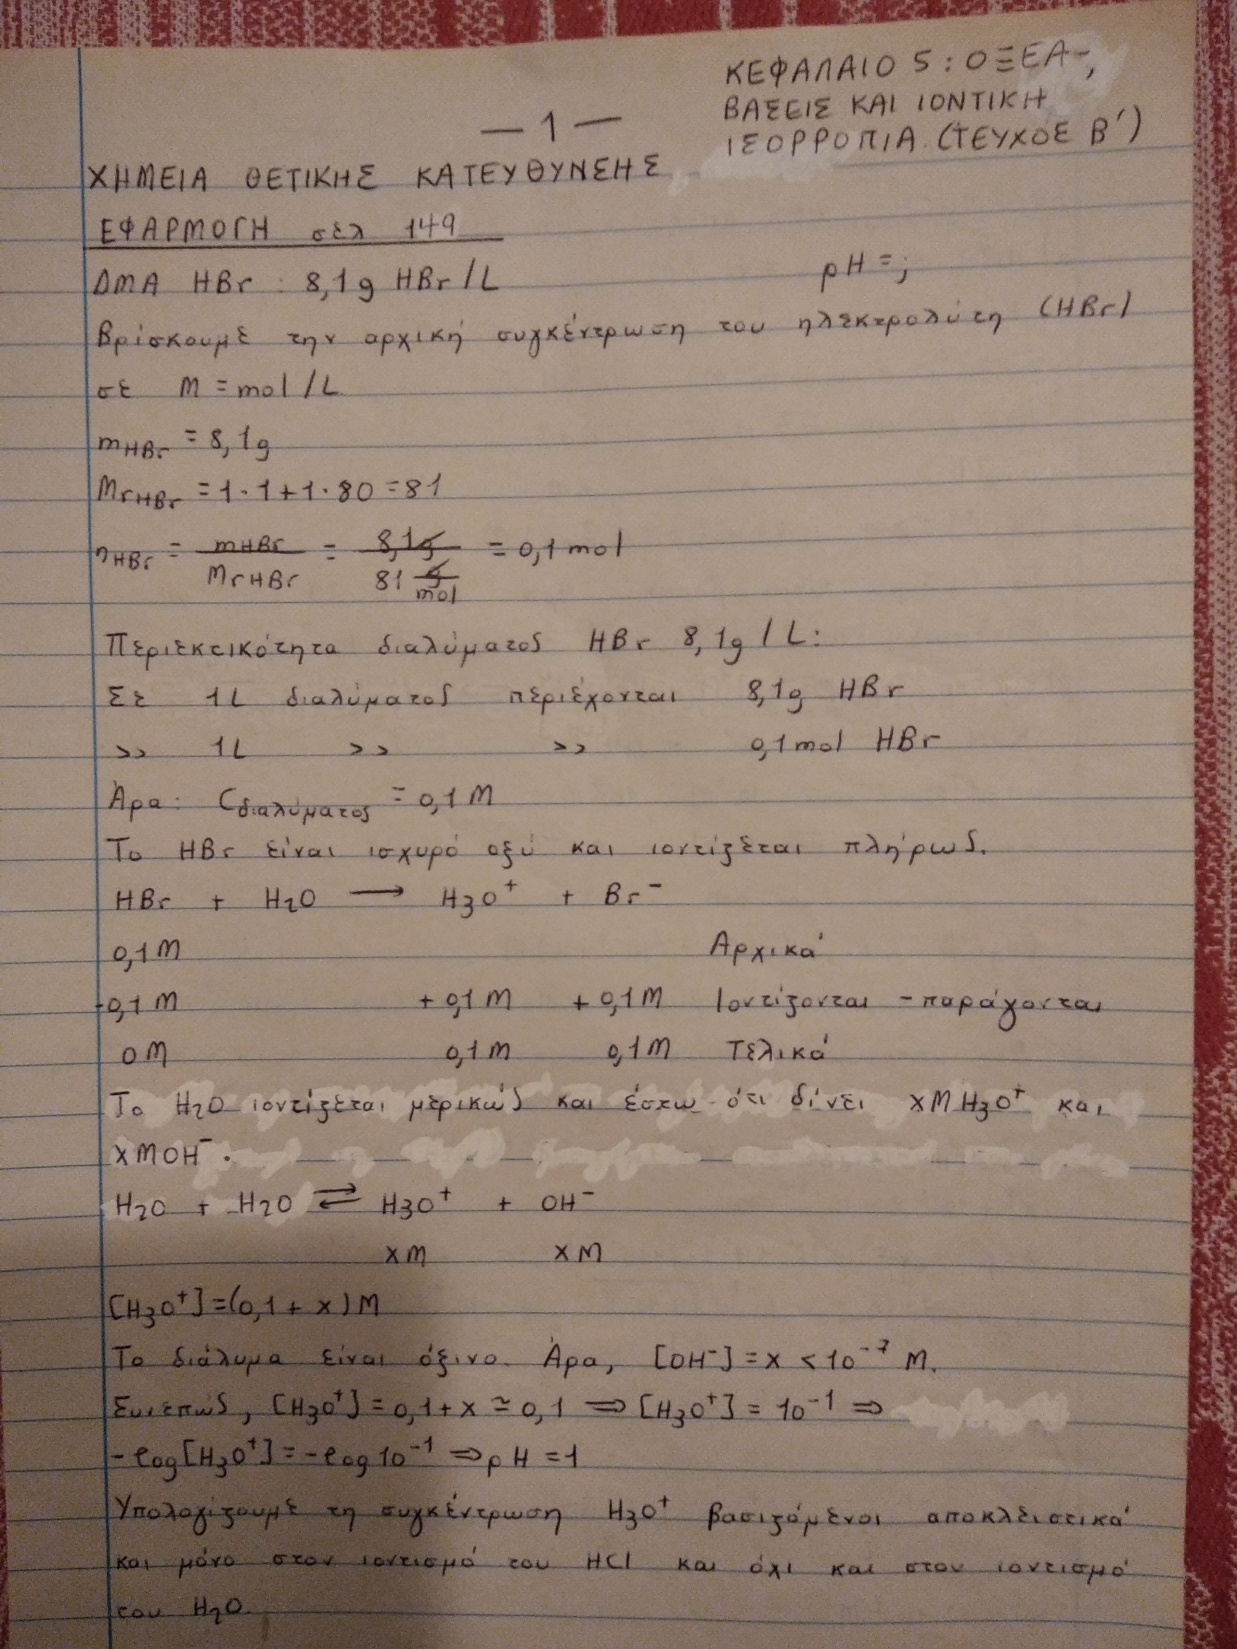 ΚΕΦΑΛΑΙΟ 5 : ΟΞΕΑ-,
ΒΑΣΕΙΣ ΚΑΙ ΙΟΝΤΙΚΗ
ΙΣΟΡΡΟΠΙΑ. (ΤΕΥΧΟΣ Β')
— 1 —
ΧΗΜΕΙΑ ΘΕΤΙΚΗΣ ΚΑΤΕΥΘΥΝΣΗΣ
ΕΦΑΡΜΟΓΗ σελ 149
ΔΜΑ HBr : 8,1g HBr/L pH = ;
Βρίσκουμε την αρχική συγκέντρωση του ηλεκτρολύτη (HBr)
σε M = mol/L
mHBr = 8,1g
MrHBr = 1·1+1·80 = 81
nHBr = mHBr/MrHBr = 8,1g/81 g/mol = 0,1 mol
Περιεκτικότητα διαλύματος HBr 8,1g/L:
Σε 1L διαλύματος περιέχονται 8,1g HBr
>> 1L >> >> 0,1 mol HBr
Άρα: Cδιαλύματος = 0,1 M
Το HBr είναι ισχυρό οξύ και ιοντίζεται πλήρως.
HBr + H2O ⟶ H3O⁺ + Br⁻
0,1M Αρχικά
-0,1M +0,1M +0,1M Ιοντίζονται - παράγονται
0M 0,1M 0,1M Τελικά
Το H2O ιοντίζεται μερικώς και έστω ότι δίνει xM H3O⁺ και
xM OH⁻.
H2O + H2O ⇄ H3O⁺ + OH⁻
xM xM
[H3O⁺]=(0,1 + x)M
Το διάλυμα είναι όξινο. Άρα, [OH⁻] = x < 10⁻⁷ M.
Συνεπώς, [H3O⁺] = 0,1+x ≃ 0,1 ⇒ [H3O⁺] = 10⁻¹ ⇒
-log[H3O⁺] = -log10⁻¹ ⇒ pH = 1
Υπολογίζουμε τη συγκέντρωση H3O⁺ βασιζόμενοι αποκλειστικά
και μόνο στον ιοντισμό του HCl και όχι και στον ιοντισμό
του H2O.